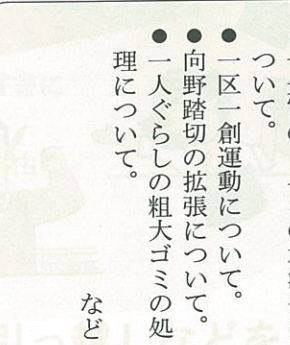 ついて。
●一区一創運動について。
●向野踏切の拡張について。
●一人ぐらしの粗大ゴミの処
理について。
など